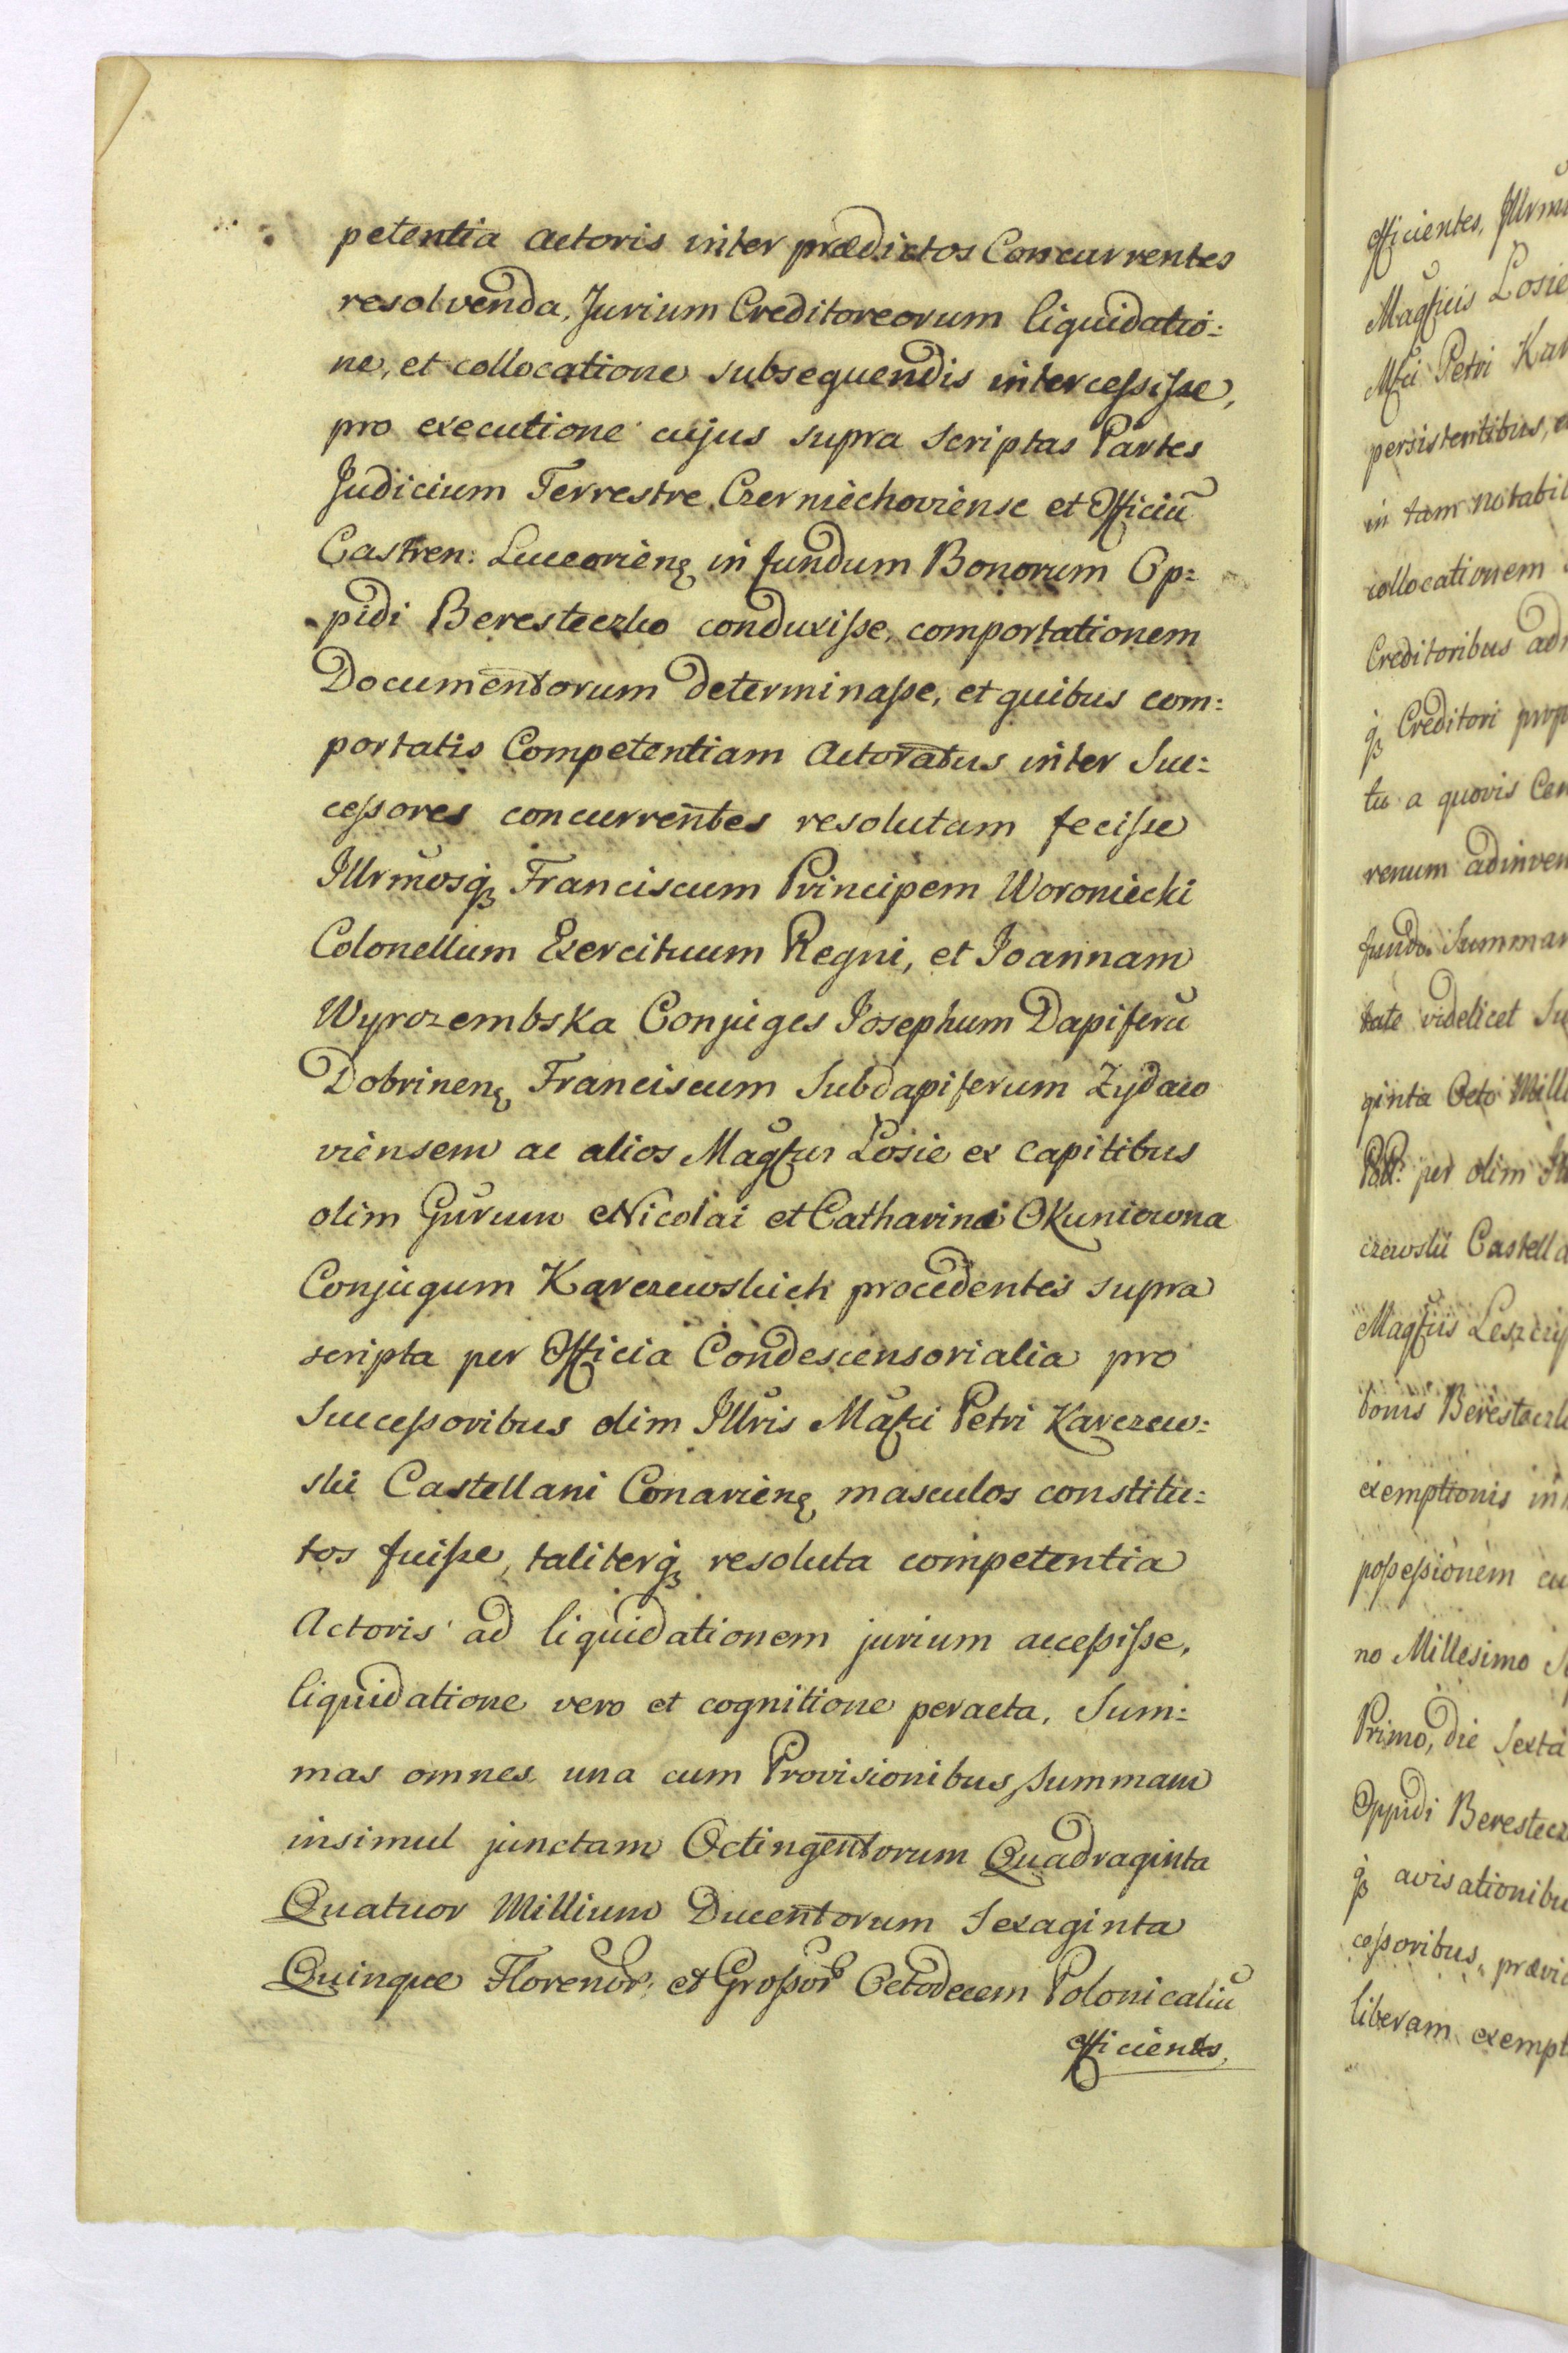 petentia actoris inter prædictos Concurrentes
resolvenda, Jurium Creditoreorum liquidatio:
ne, et collocatione subsequendis intercessisse,
pro executione cujus supra scriptas Partes
Judicium Terrestre Czerniechoviense et Officiũ
Castren: Luceorienę in fundum Bonorum Op:
pidi Beresteczko conduxisse, comportationem
Documentorum determinasse, et quibus com:
portatis Competentiam Actoratus inter Suc:
cessores concurrentes resolutam fecisse
Illrmosq̨ Franciscum Principem Woroniecki
Colonellum Exercituum Regni, et Joannam
Wyrozembska Conjuges Josephum Dapiferũ
Dobrinenę Franciscum Subdapiferum Zydaco
viensem ac alios Magfcos Losie ex Capitibus
olim Gurum Nicolai et Catharina Okuniowna
Conjugum Karczewskich procedentes supra
scripta per Officia Condescensorialia pro
Successoribus olim Illris Mafci Petri Karczew:
ski Castellani Conarienę masculos constitu:
tos fuisse, taliterq̨ resoluta competentia
Actoris ad liquidationem jurium accessisse,
liquidatione vero et cognitione peracta, Sum:
mas omnes una cum Provisionibus summam
insimul junctam Octingentorum Quadraginta
Quatuor Millium Ducentorum Sexaginta
Quinque Florenor: et Grossor Octodecem Polonicaliũ
efficientes,
efficientes, Illrmu
Magficis Losie
Mfci Petri Kar
persistentibus,
in tam notabil
collocationem
Creditoribus ad
q̨ Creditori prop
tu a quovis Cen
renum adinven
fundo Summar
tate videlicet Su
ginta Octo Mill
per olim
czewski Castella
Magfcis Leszczy
bonis Beresteczk
exemptionis in
possessionem cu
no Millesimo S
Primo, die Sexta
Oppidi Beresteez
q̨ avisationibu
cessoribus, prævi
liberam exempt